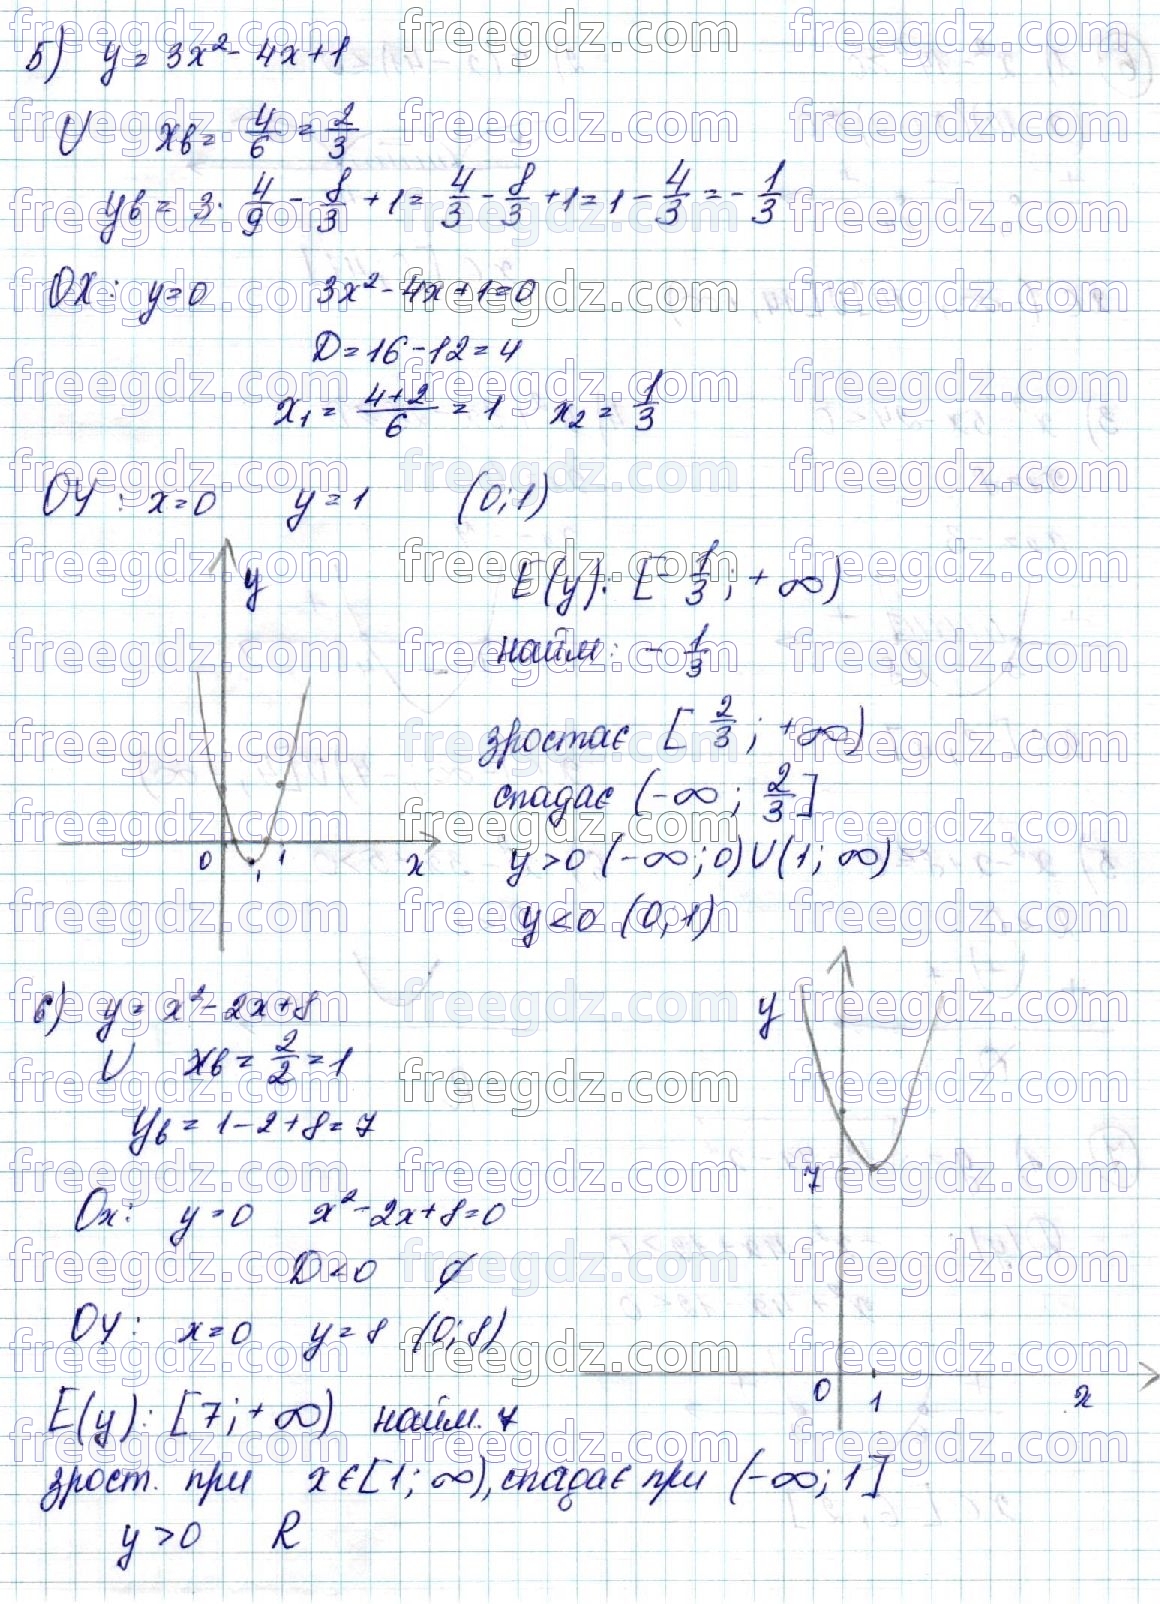 5) y = 3x² - 4x + 1
U xв = 4/6 = 2/3
yв = 3 · 4/9 - 8/3 + 1 = 4/3 - 8/3 + 1 = 1 - 4/3 = - 1/3
OX: y=0 3x² - 4x + 1 = 0
D = 16 - 12 = 4
x₁ = (4+2)/6 = 1 x₂ = 1/3
OY: x=0 y=1 (0;1)
y
0 1 x
E(y): [- 1/3; +∞)
найм: - 1/3
зростає [2/3; +∞)
спадає (-∞; 2/3]
y>0 (-∞; 0) U (1; ∞)
y<0 (0; 1)
6) y = x² - 2x + 8
U xв = 2/2 = 1
yв = 1 - 2 + 8 = 7
Ox: y=0 x² - 2x + 8 = 0
D<0 ∅
OY: x=0 y=8 (0; 8)
y
7
0 1 x
E(y): [7; +∞) найм. 7
зрост. при x∈[1; ∞), спадає при (-∞; 1]
y>0 R
freegdz.com